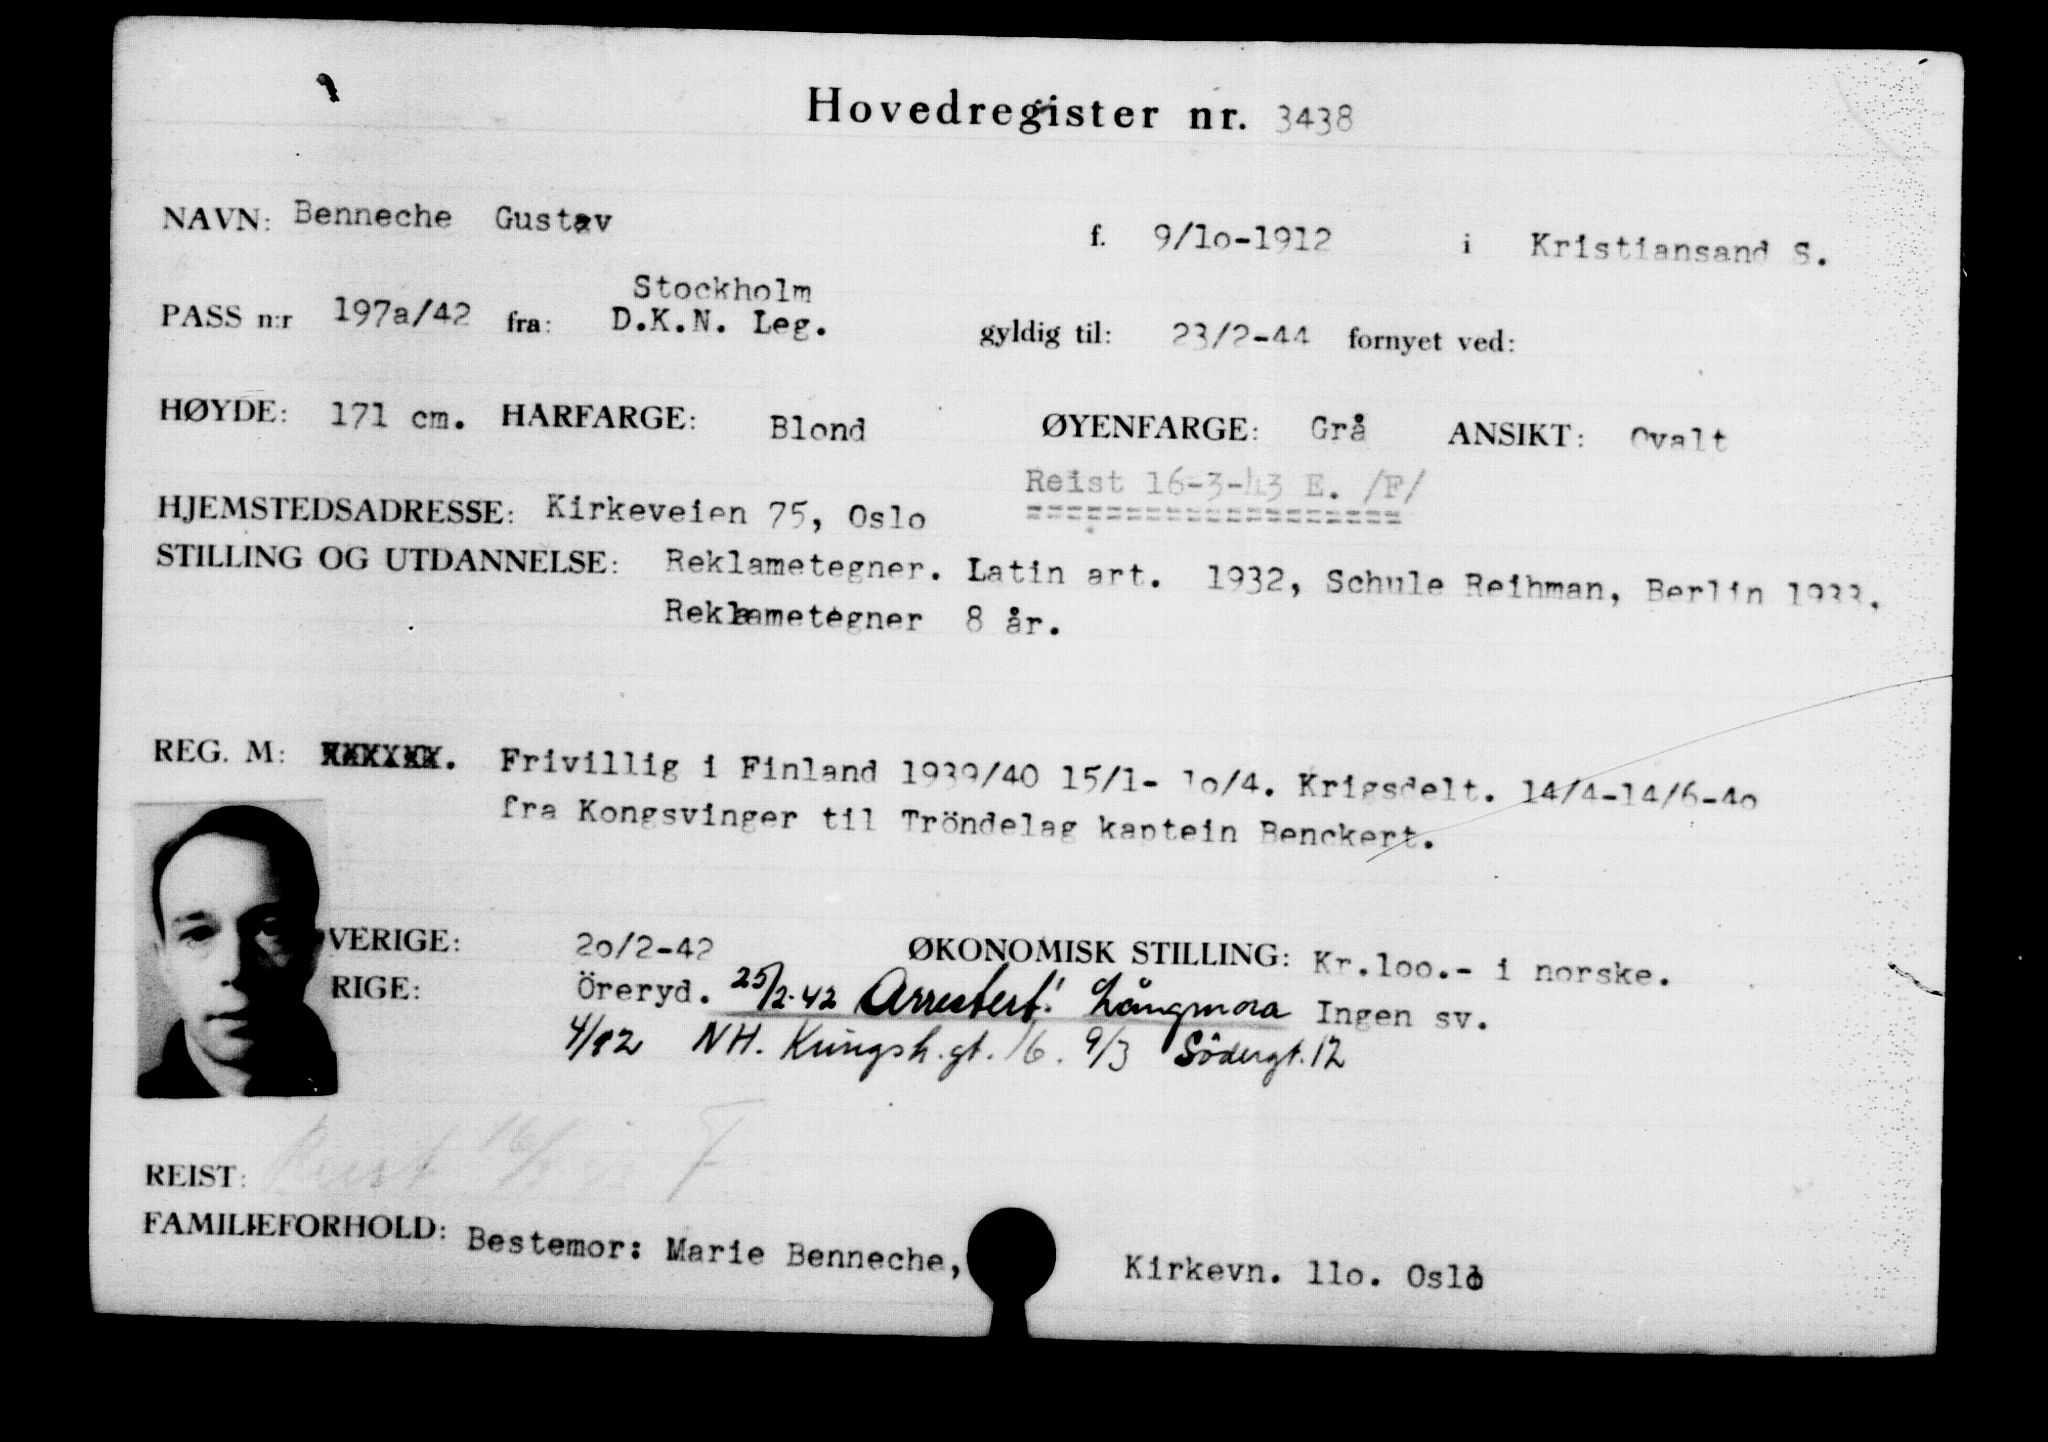 Hovedregister nr. 3438
NAVN: Benneche Gustav f. 9/10-1912 i Kristiansand S.
Stockholm
PASS n:r 197a/42 fra: D.K.N. Leg. gyldig til: 23/2-44 fornyet ved:
HØYDE: 171 cm. HARFARGE: Blond ØYENFARGE: Grå ANSIKT: Ovalt
Reist 16-3-43 E. /F/
===================
HJEMSTEDSADRESSE: Kirkeveien 75, Oslo
STILLING OG UTDANNELSE: Reklametegner. Latin art. 1932, Schule Reihman, Berlin 1933.
Reklametegner 8 år.
REG. M: XXXXXX. Frivillig i Finland 1939/40 15/1- 10/4. Krigsdelt. 14/4-14/6-40
fra Kongsvinger til Tröndelag kaptein Benckert.
VERIGE: 20/2-42 ØKONOMISK STILLING: Kr.100.- i norske.
RIGE: Öreryd. 25/2-42 Arrestert! Långmora Ingen sv.
NH. Kungsh.gt. 16. 9/3 Södergt. 12
REIST: Reist 16/ F
FAMILIEFORHOLD: Bestemor: Marie Benneche, Kirkevn. 110. Oslo